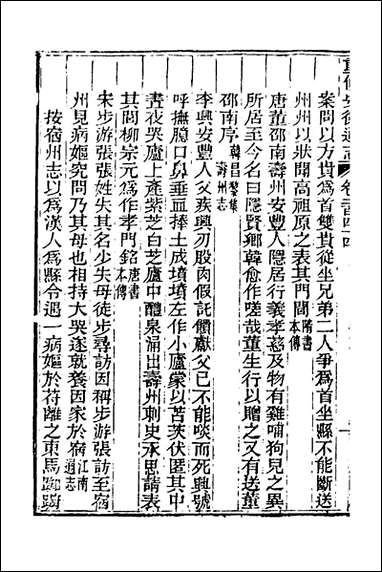 重修安徽通志 卷二百四十四
案問以方貴爲首雙貴從坐兄弟二人爭爲首坐縣不能斷送
州州以狀聞高祖原之表其門閭隋書本傳
唐董邵南壽州安豐人隱居行義孝慈及物有雞哺狗兒之異
所居至今名曰隱賢鄉韓愈作嗟哉董生行以贈之又有送董
邵南序韓昌黎集 壽州志
李興安豐人父疾興刃股肉假託饋獻父已不能啖而死興號
呼撫臆口鼻垂血捧土成墳墳左作小廬蒙以苫茨伏匿其中
晝夜哭廬上產紫芝白芝廬中醴泉涌出壽州刺史承思請表
其閭柳宗元爲作孝門銘唐書本傳
宋步游張張姓失其名少失母徒步尋訪因稱步游張訪至宿
州見病嫗究問乃其母也相持大哭遂就養因家於宿江南通志
按宿州志以爲漢人爲縣令遇一病嫗於苻離之東馬踟躕